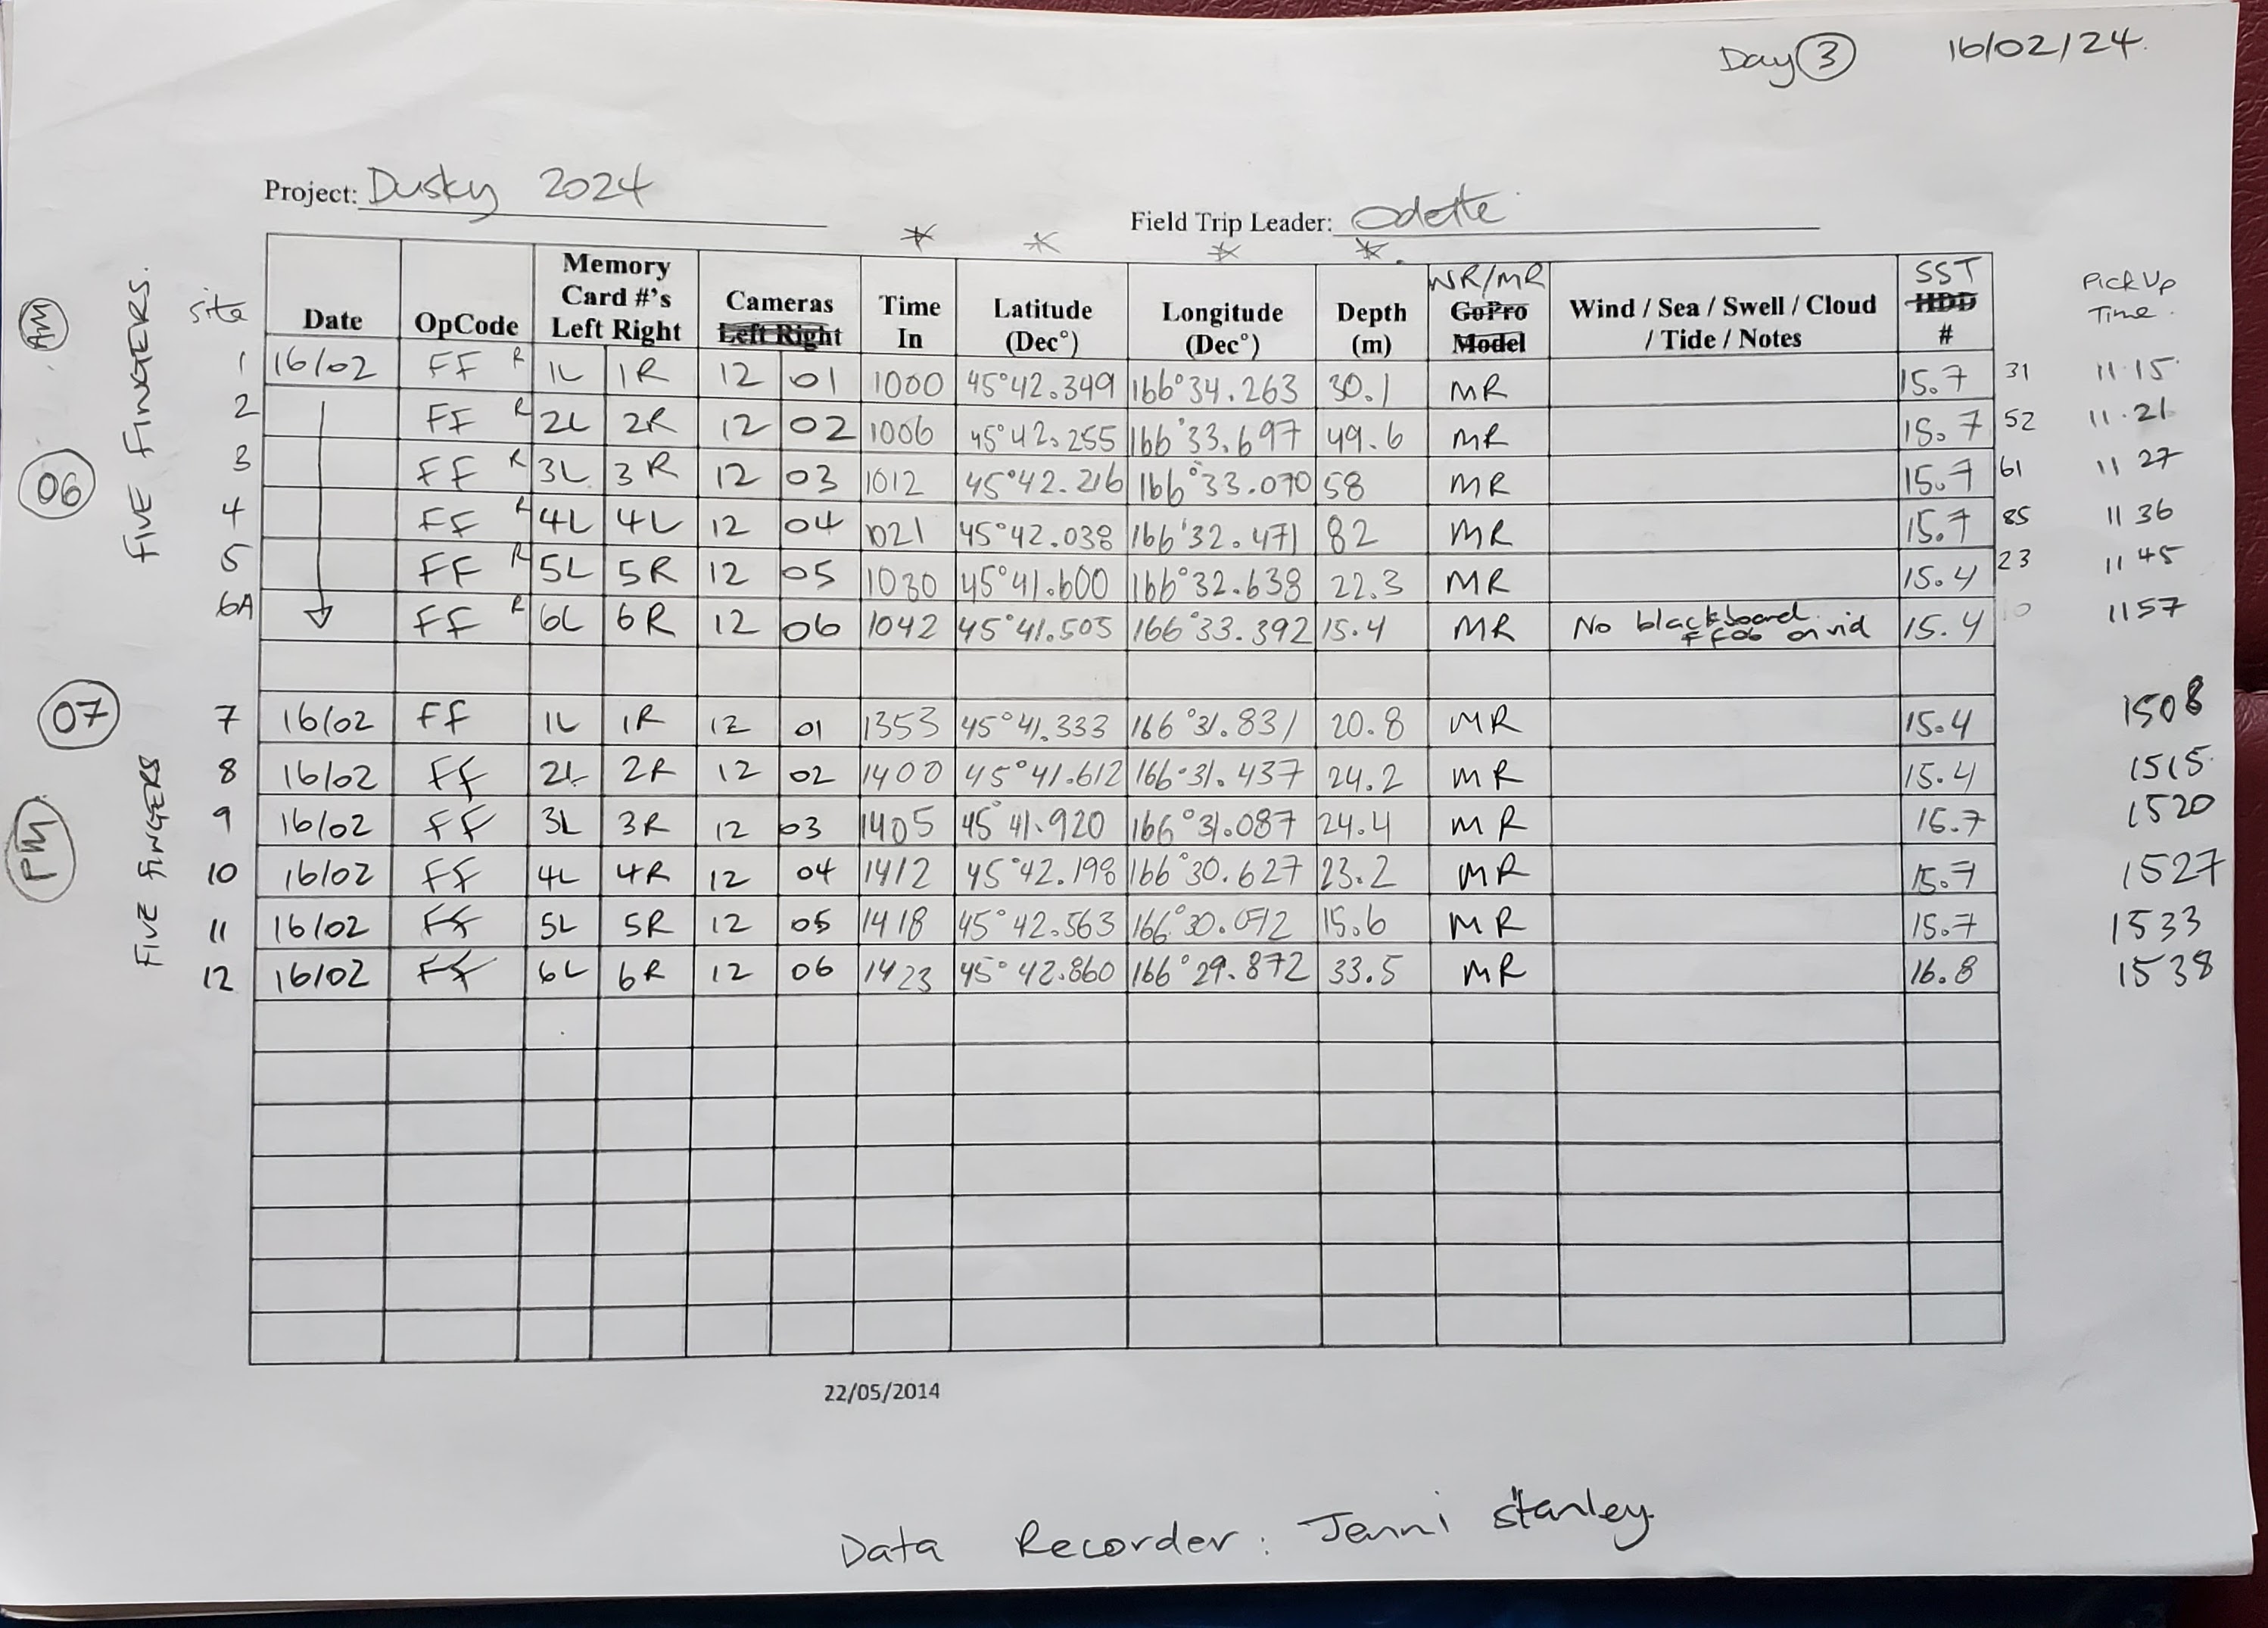 Day 3 16/02/24
Project: Dusky 2024
Field Trip Leader: Odette
* * * *
AM
06
FIVE FINGERS.
site Date OpCode Memory Card #'s Left Right Cameras Left Right Time In Latitude (Dec°) Longitude (Dec°) Depth (m) WR/MR GoPro Model Wind / Sea / Swell / Cloud / Tide / Notes SST HDD # Pick Up Time.
1 16/02 FF R 1L 1R 12 01 1000 45°42.349 166°34.263 30.1 MR 15.7 31 11.15
2 FF R 2L 2R 12 02 1006 45°42.255 166°33.697 49.6 MR 15.7 52 11.21
3 FF R 3L 3R 12 03 1012 45°42.216 166°33.070 58 MR 15.7 61 11 27
4 FF R 4L 4L 12 04 1021 45°42.038 166°32.471 82 MR 15.7 85 11 36
5 FF R 5L 5R 12 05 1030 45°41.600 166°32.638 22.3 MR 15.4 23 11 45
6A FF R 6L 6R 12 06 1042 45°41.505 166°33.392 15.4 MR No blackboard FF06 on vid 15.4 1157
07
FIVE FINGERS
PM
7 16/02 FF 1L 1R 12 01 1353 45°41.333 166°31.831 20.8 MR 15.4 1508
8 16/02 FF 2L 2R 12 02 1400 45°41.612 166°31.437 24.2 MR 15.4 1515
9 16/02 FF 3L 3R 12 03 1405 45°41.920 166°31.087 24.4 MR 15.7 1520
10 16/02 FF 4L 4R 12 04 1412 45°42.198 166°30.627 23.2 MR 15.7 1527
11 16/02 FF 5L 5R 12 05 1418 45°42.563 15.6 MR 15.7 1533
12 16/02 FF 6L 6R 12 06 1423 45°42.860 166°29.872 33.5 MR 16.8 1538
22/05/2014
Data Recorder: Jenni Stanley